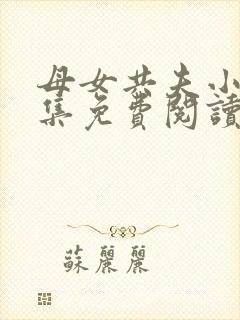 母女共夫小
集免费閱讀
蘇麗麗